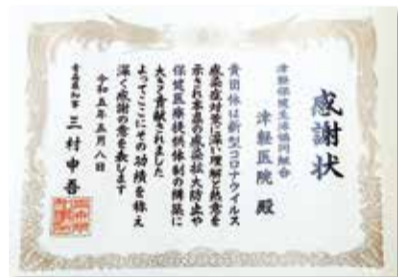 感謝状
津軽保健生活協同組合
津軽医院 殿
貴団体は新型コロナウイルス
感染症対策に深い理解と熱意を
示され本県の感染拡大防止や
保健医療提供体制の構築に
大きく貢献されました
よってここにその功績を称え
深く感謝の意を表します
令和五年五月八日
青森県知事 三村申吾